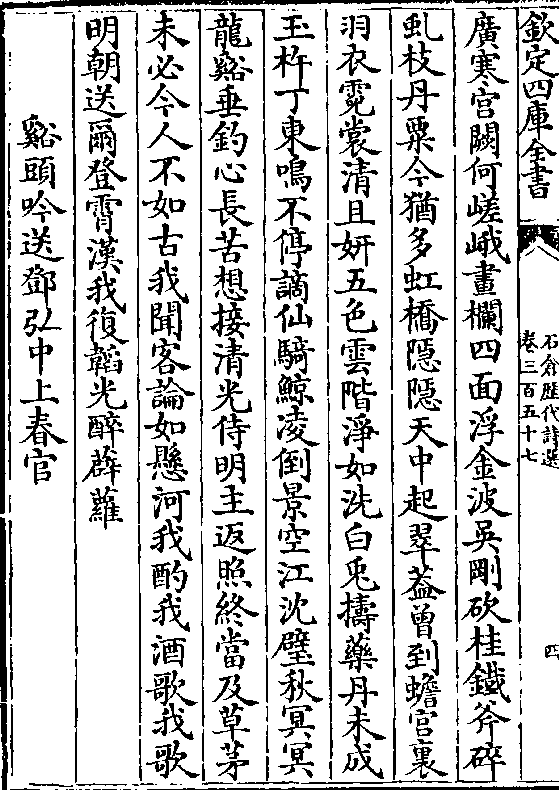 欽定四庫全書
石倉歷代詩選
卷三百五十七
四
廣寒宮闕何嵯峨畫欄四面浮金波吳剛砍桂鐵斧碎
虬枝丹粟今猶多虹橋隱隱天中起翠葢曾到蟾宮裏
羽衣霓裳清且妍五色雲階淨如洗白兎擣藥丹未成
玉杵丁東鳴不停謫仙騎鯨凌倒景空江沈璧秋冥冥
龍谿垂釣心長苦想接清光侍明主返照終當及草茅
未必今人不如古我聞客論如懸河我酌我酒歌我歌
明朝送爾登霄漢我復韜光醉薜蘿
谿頭吟送鄧弘中上春官